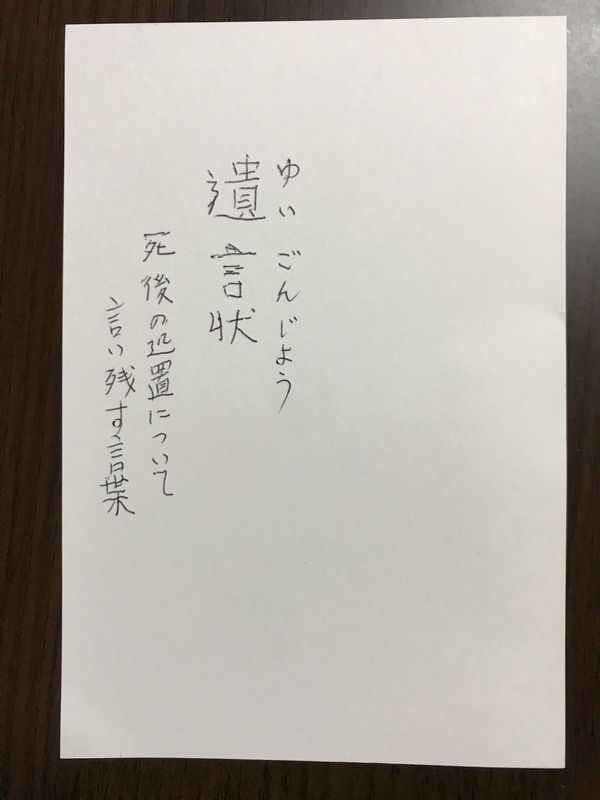 ゆいごんじょう
遺言状
死後の処置について
言い残す言葉